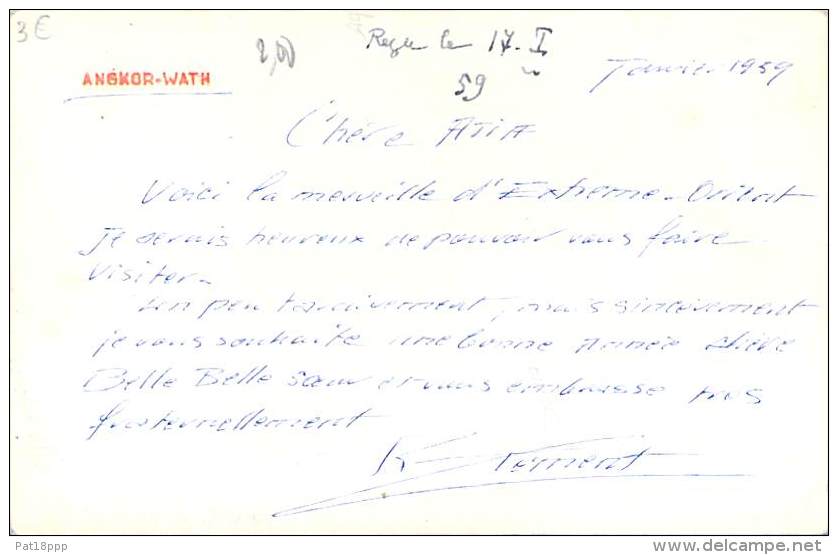 3€
2,00
Reçu le 17-I
59
ANGKOR-WATH
Janvier 1959
Chère Atia
Voici la merveille d'Extreme-Orient
Je serais heureux de pouvoir vous faire
visiter.
Un peu tardivement, mais sincèrement
je vous souhaite une bonne Année chère
Belle Belle sœur et vous embrasse très
fraternellement
Pat18ppp
delcampe.net